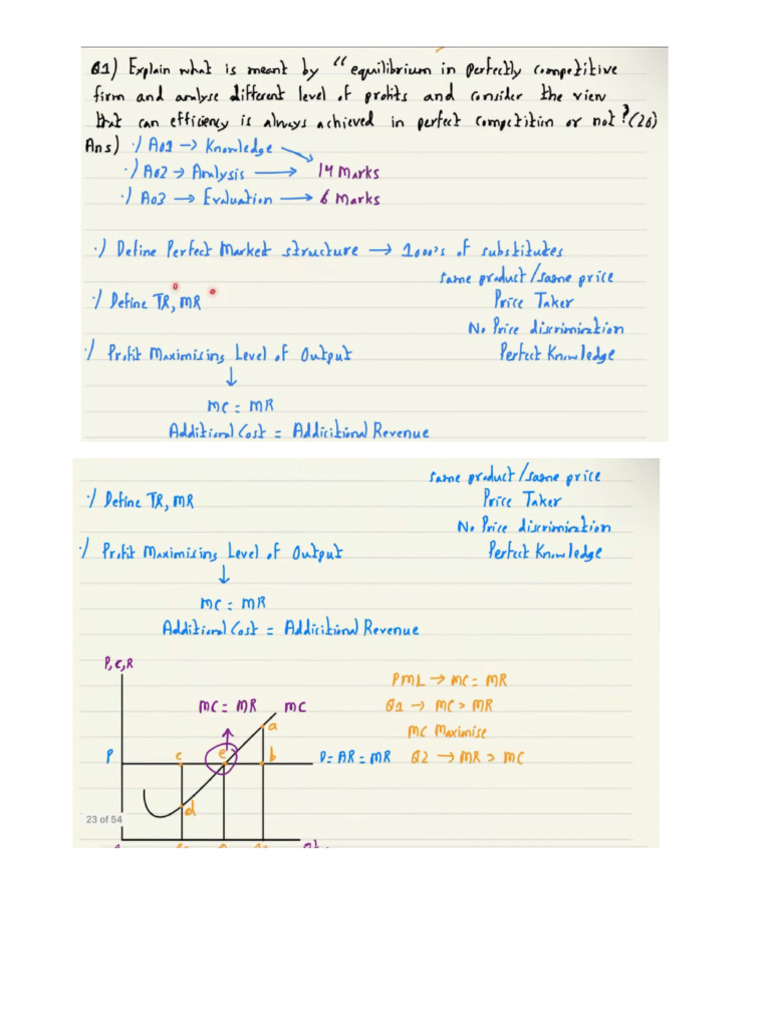 Q1) Explain what is meant by "equilibrium in perfectly competitive
firm and analyse different level of profits and consider the view
that can efficiency is always achieved in perfect competition or not? (20)
Ans) •) AO1 → Knowledge
•) AO2 → Analysis → 14 Marks
•) AO3 → Evaluation → 6 Marks
•) Define Perfect Market structure → 1000's of substitutes
same product/same price
•) Define TR, MR
Price Taker
No Price discrimination
•) Profit Maximising Level of Output
Perfect Knowledge
↓
MC = MR
Additional Cost = Addicitional Revenue
same product/same price
•) Define TR, MR
Price Taker
No Price discrimination
•) Profit Maximising Level of Output
Perfect Knowledge
↓
MC = MR
Additional Cost = Addicitional Revenue
P,C,R
PML → MC = MR
MC = MR MC
Q1 → MC > MR
a
MC Maximise
P c e b D = AR = MR
Q2 → MR > MC
d
23 of 54